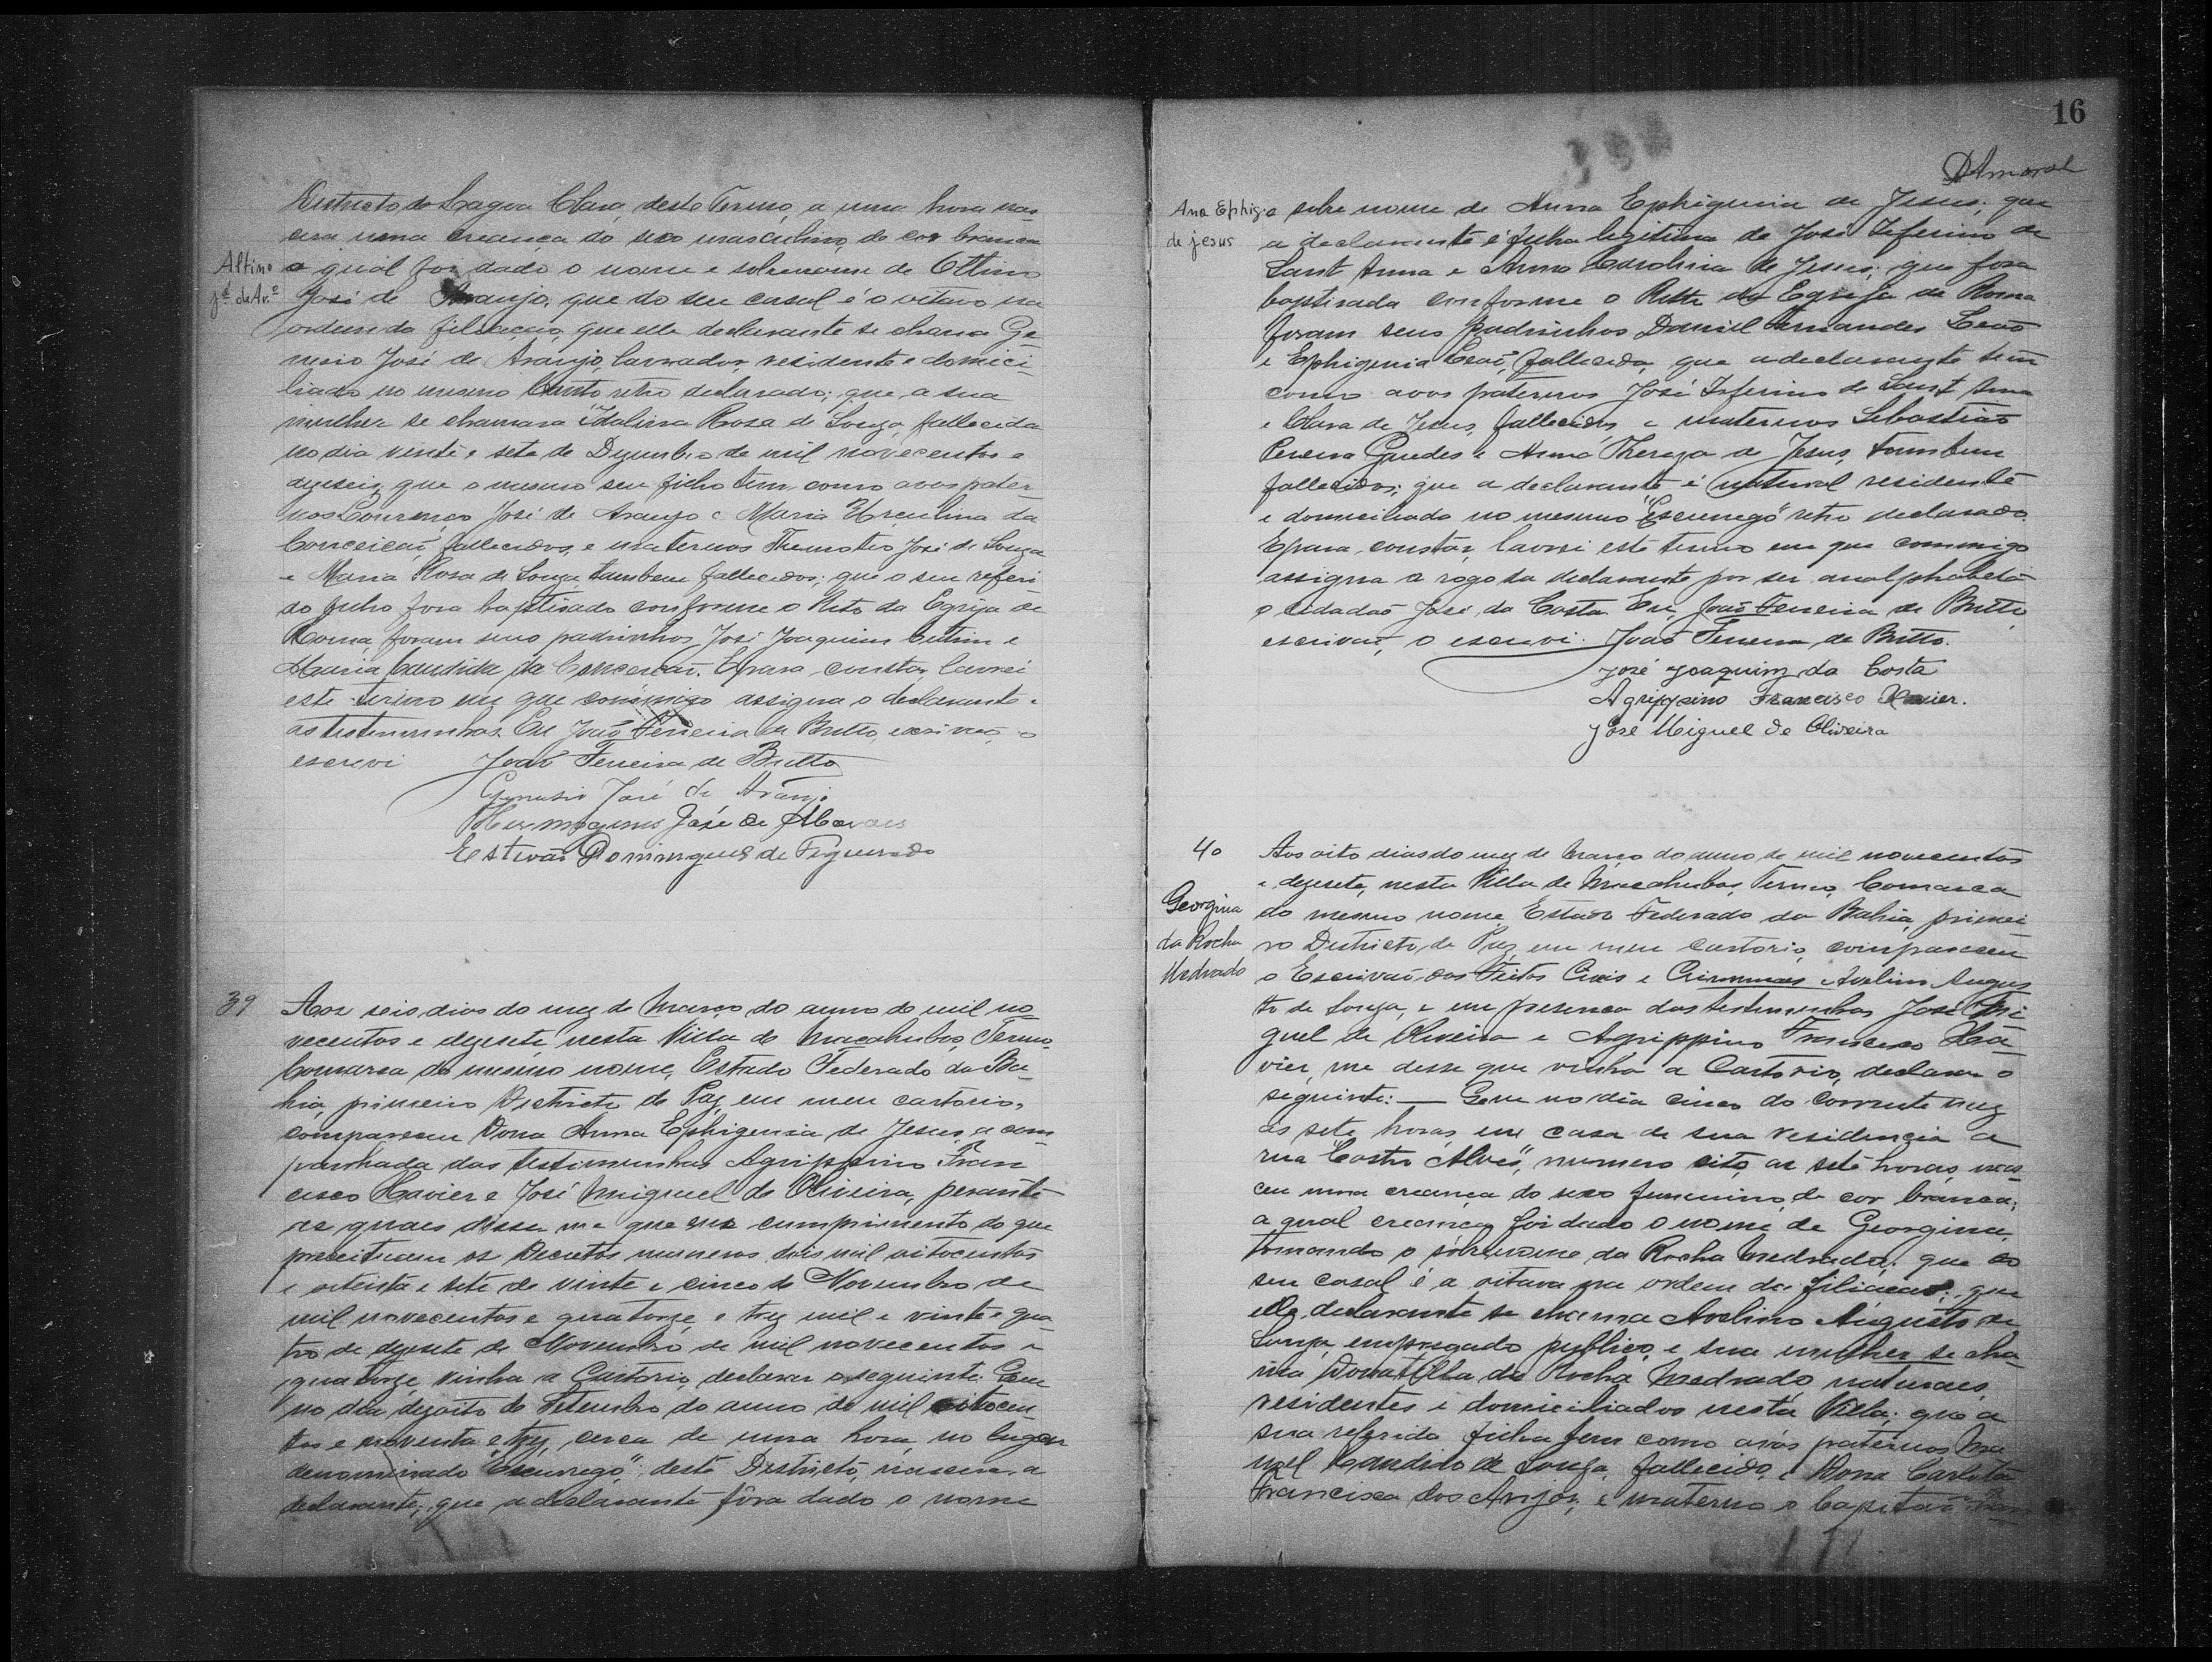 Districto de Lagoa Clara, deste Termo, a uma hora nas
cera uma creança do sexo masculino, de cor branca
a qual foi dado o nome e sobrenome de Ottino
José de Araujo, que do seu casal é o oitavo na
ordem da filiação, que elle declarante se chama Ge
nesio José de Araujo, lavrador, residente e domici
liado no mesmo retro declarado; que a sua
mulher se chamava Idalina Rosa de Souza, fallecida
no dia vinte e sete de Dezembro de mil novecentos e
dezeseis, que o mesmo seu filho tem como avos pater
nos Lourenço José de Araujo e Maria Herculina da
Conceição, fallecidos, e maternos Themoteo José de Souza
e Maria Rosa de Souza, tambem fallecidos; que o seu referi
do filho fora baptisado conforme o Rito da Egreja de
Roma, foram seus padrinhos José Joaquim e
Maria Candida da Conceição. E para constar, lavrei
este termo em que commigo assigna o declarante e
as testemunhas. Eu João Ferreira de Britto, escrivão, o
escrevi João Ferreira de Britto
Genesio José de Araujo
Hermogenes José de Moraes
Estevão Domingues de Figueredo
Altino
jé de Ar.º
39
Aos seis dias do mez de Março do anno de mil no
vecentos e dezesete, nesta Villa de Macahubas, Termo,
Comarca do mesmo nome, Estado Federado da Ba-
hia, primeiro Districto de Paz, em meu cartorio,
compareceu Dona Anna Ephigenia de Jesus, acom
panhada das testemunhas Agrippino Fran
cisco Xavier e José Miguel de Oliveira, perante
as quaes disse me que em cumprimento do que
preceituam os Decretos numeros dois mil oitocentos
e oitenta e sete de vinte e cinco de Novembro de
mil novecentos e quatorze, e trez mil e vinte e qua-
tro de dezesete de Novembro de mil novecentos e
quatorze, vinha a Cartorio, declarar o seguinte: Que
no dia dezoito de Setembro do anno de mil oitocen-
tos e noventa e trez, cerca de uma hora, no lugar
denominado "Escurregó" deste Districto, nascera a
declarante; que a declarante fôra dado o nome
16
D'Amaral
Ana Ephig.a
de jesus
e sobre nome de Anna Ephigenia de Jesus; que
a declarante é filha legitima de José Zeferino de
Sant Anna e Anna Carolina de Jesus; que fora
baptisada conforme o Ritto da Egreja de Roma
foram seus padrinhos Daniel Fernandes Leão
e Ephigenia Leão, fallecida, que a declarante tem
como avos paternos José Zeferino de Sant Anna
e Clara de Jesus, fallecidos, e maternos Sebastião
Pereira Guedes e Anna Thereza de Jesus, tambem
fallecidos; que a declarante é natural residente
e domiciliada no mesmo "Escurregó" retro declarado.
E para constar, lavrei este termo em que commigo
assigna a rogo da declarante por ser analphabeta
o cidadão José da Costa. Eu, João Ferreira de Britto,
escrivão, o escrevi. João Ferreira de Britto.
José Joaquim da Costa
Agrippino Francisco Xavier.
José Miguel de Oliveira
40
Georgina
da Rocha
Medrado
Aos oito dias do mez de Março do anno de mil novecentos
e dezesete, nesta Villa de Macahubas, Termo, Comarca
do mesmo nome Estado Federado da Bahia, primei
ro Districto de Paz, em meu cartorio, compareceu
o Escrivão dos Feitos Civis e Criminaes Avelino Augus
to de Souza, e em presença das testemunhas José Mi-
guel de Oliveira e Agrippino Francisco Xa-
vier, me disse que vinha a Cartorio, declarar o
seguinte: — Que no dia cinco do corrente mez
ás sete horas, em casa de sua residencia a
rua "Castro Alves", numero oito, as sete horas, nas
ceu uma creança do sexo femenino, de cor branca;
a qual creança foi dado o nome de Georgina,
tomando o sobrenome da Rocha Medrado; que do
seu casal é a oitava na ordem da filiação; que
elle declarante se chama Avelino Augusto de
Souza, empregado publico, e sua mulher se cha-
ma Donatilla da Rocha Medrado naturaes,
residentes e domiciliados nesta Villa; que a
sua referida filha tem como avós paternos Ma
noel Candido de Souza, fallecido, e Dona Carlota
Francisca dos Anjos, e materno o Capitão